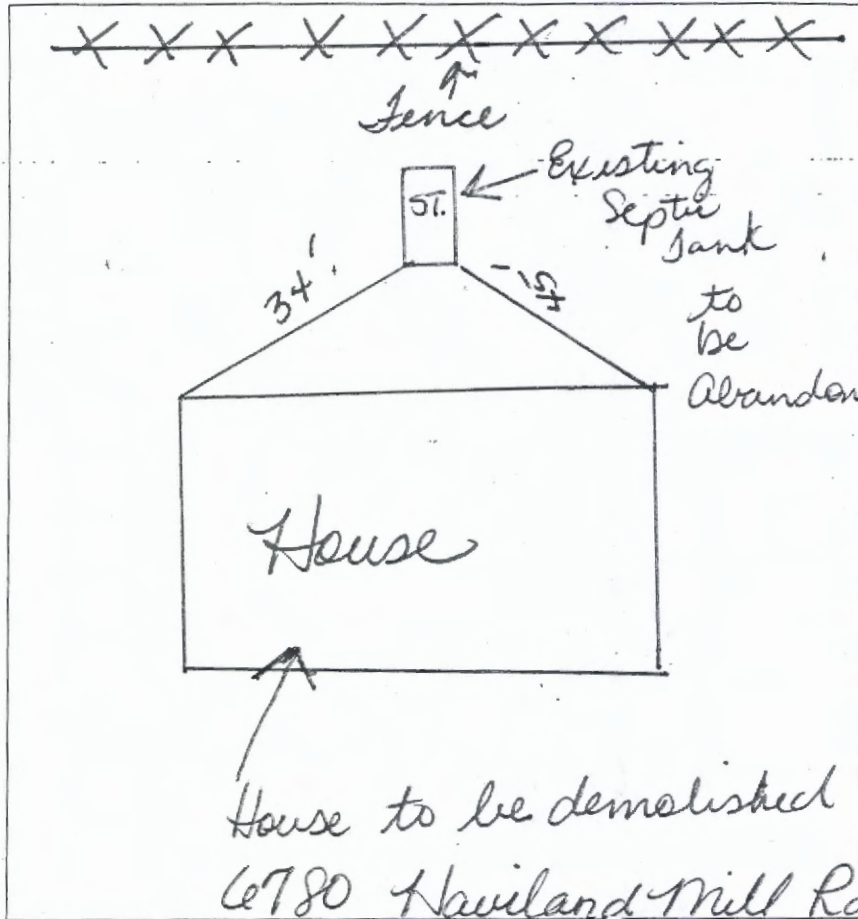 Fence
ST.
Existing
Septic
Tank
to
be
Abandon
34'
House
House to be demolished
6780 Haviland Mill